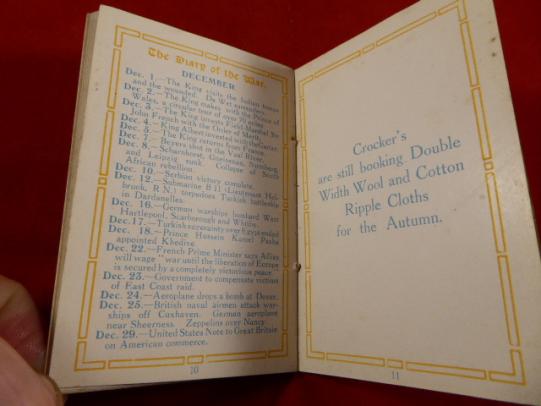 The Diary of the War.
DECEMBER
Dec. 1.—The King visits the Indian troops
and the wounded. De Wet surrenders.
Dec. 2.—The King makes with the Prince of
Wales, a circular tour of over 70 miles.
Dec. 3.—The King invests Field Marshal Sir
John French with the Order of Merit.
Dec. 4.—King Albert invested with the Garter.
Dec. 5.—The King returns from France.
Dec. 7.—Beyers shot in the Vaal River.
Dec. 8.—Scharnhorst, Gneisenau, Nürnberg,
and Leipzig sunk. Collapse of North
African rebellion.
Dec. 10.—Serbian victory complete.
Dec. 12.—Submarine B 11 (Lieutenant Hol-
brook, R.N.) torpedoes Turkish battleship
in Dardanelles.
Dec. 16.—German warships bombard West
Hartlepool, Scarborough and Whitby.
Dec. 17.—Turkish suzerainty over Egypt ended
Dec. 18.—Prince Hussein Kamel Pasha
appointed Khedive.
Dec. 22.—French Prime Minister says Allies
will wage "war until the liberation of Europe
is secured by a completely victorious peace."
Dec. 23.—Government to compensate victims
of East Coast raid.
Dec. 24.—Aeroplane drops a bomb at Dover.
Dec. 25.—British naval airmen attack war-
ships off Cuxhaven. German aeroplane
near Sheerness. Zeppelins over Nancy.
Dec. 29.—United States Note to Great Britain
on American commerce.
10
Crocker's
are still booking Double
Width Wool and Cotton
Ripple Cloths
for the Autumn.
11